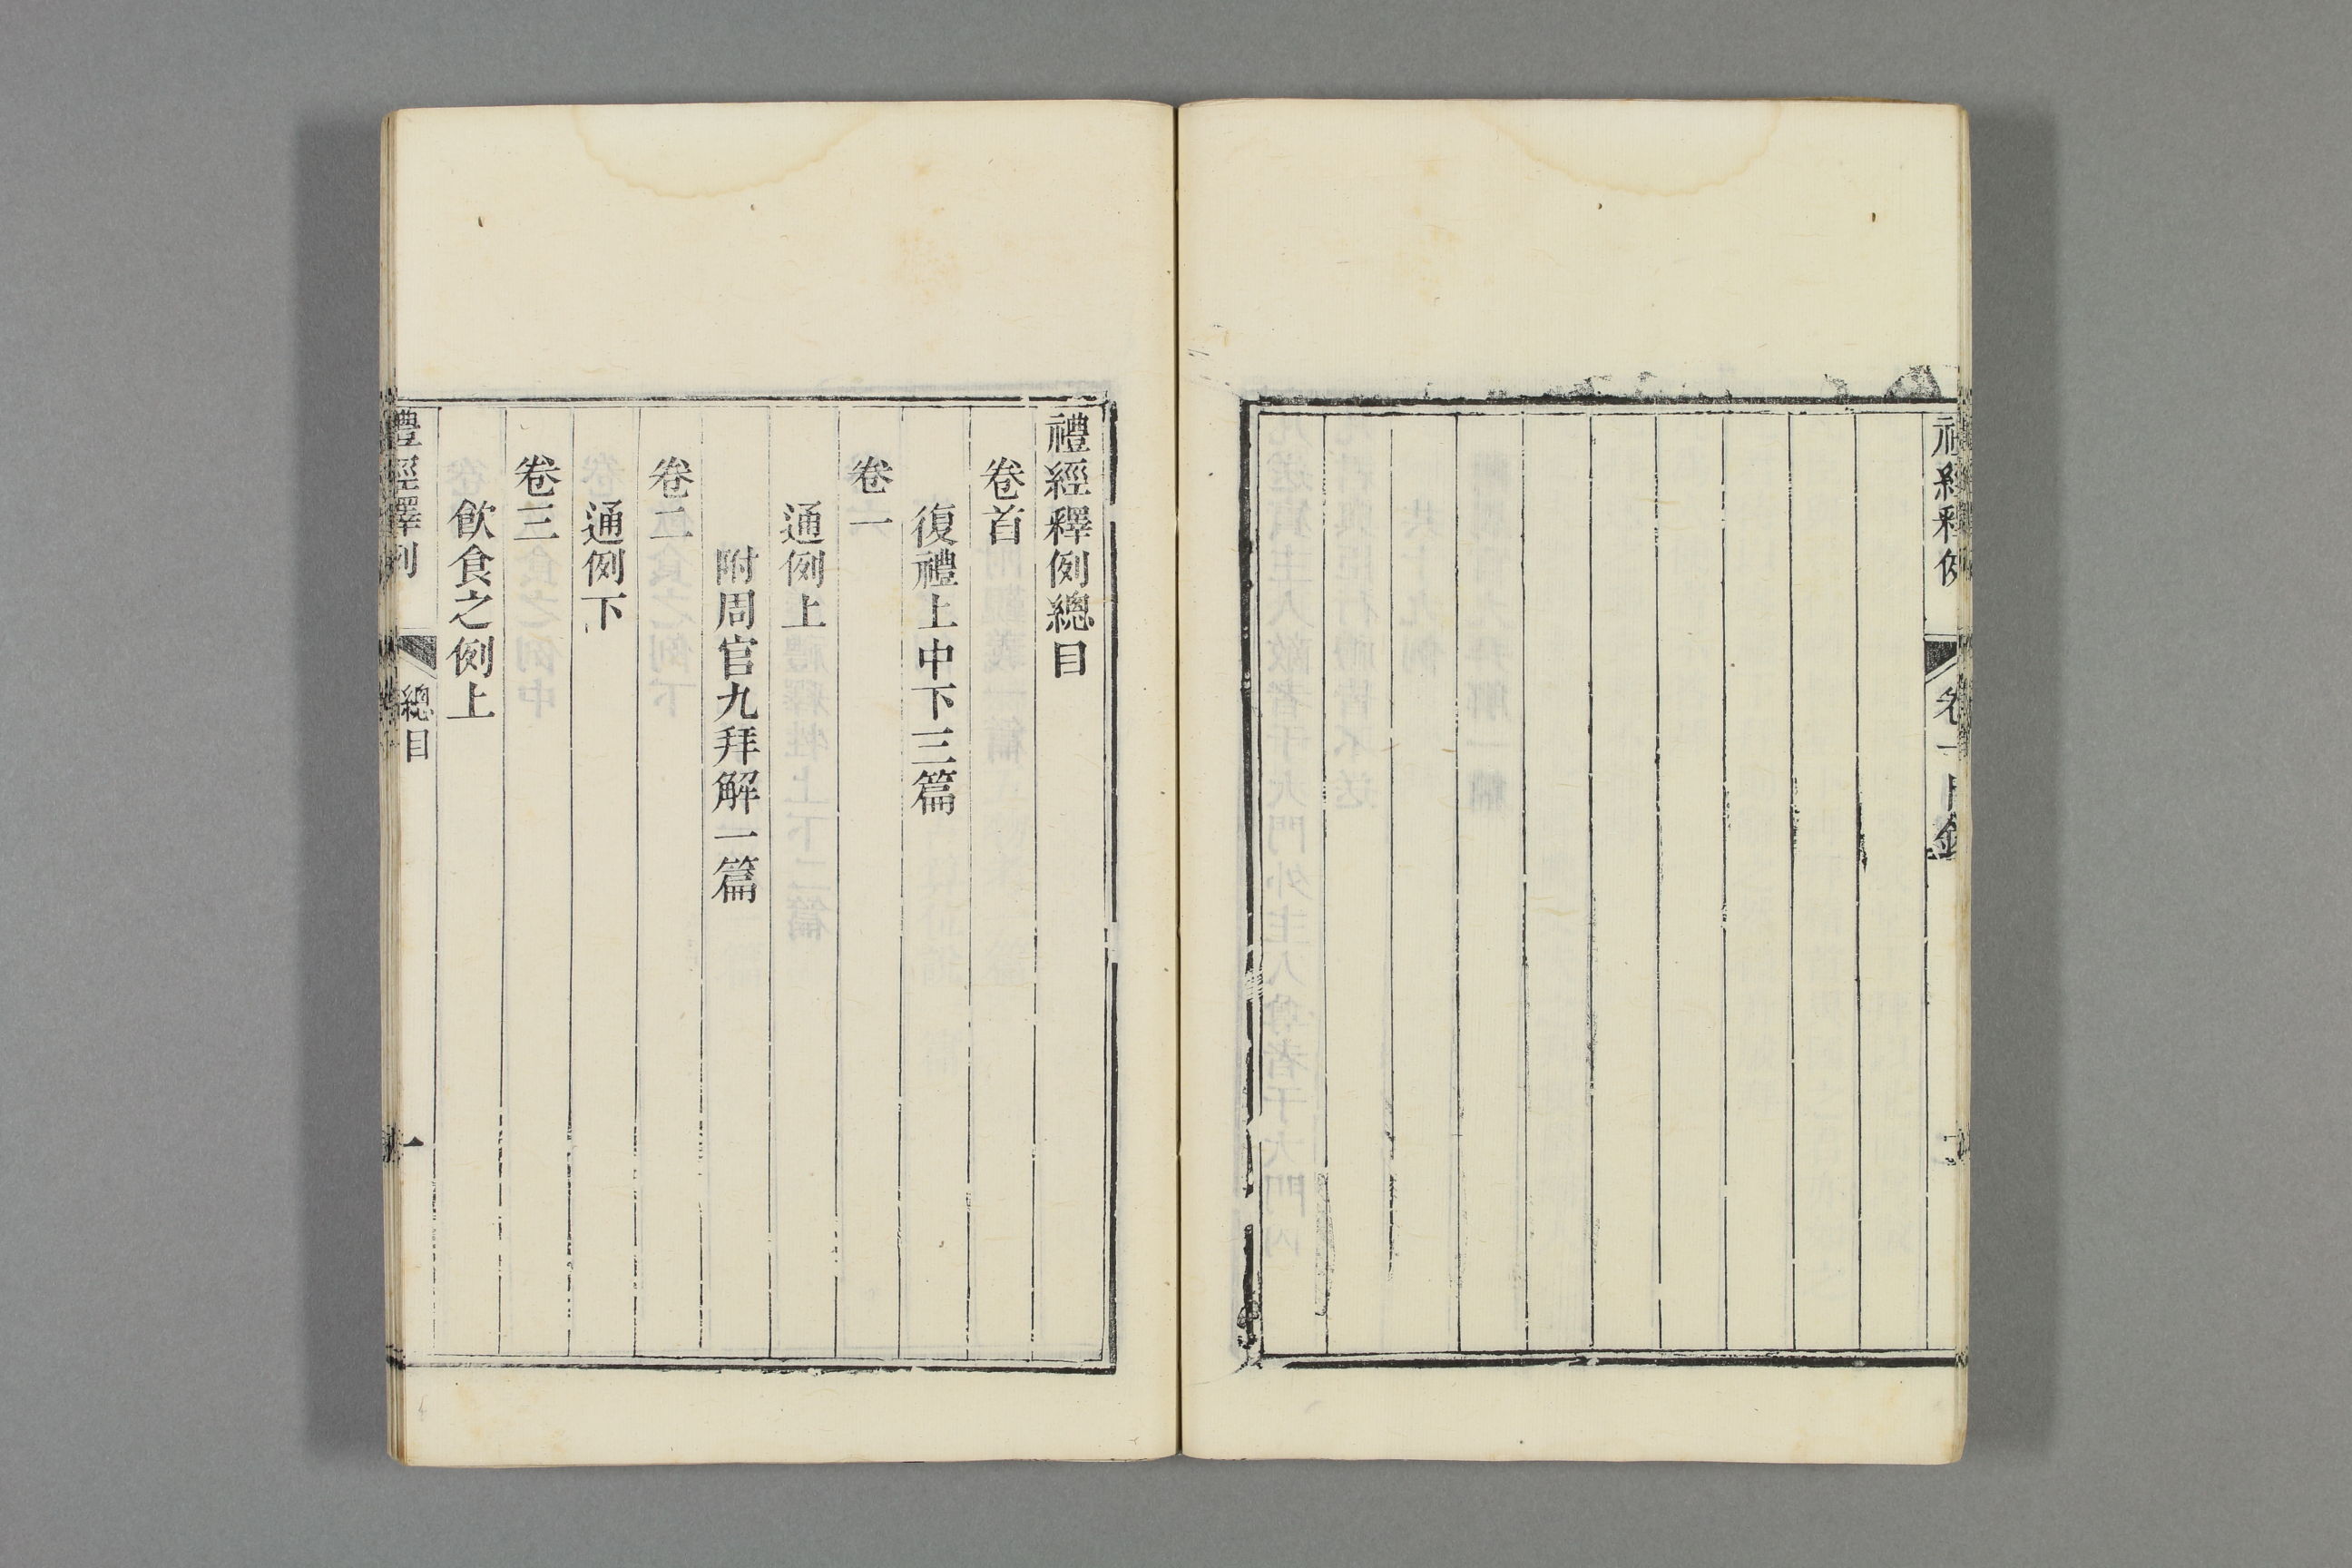 禮經釋例總目
卷首
復禮上中下三篇
卷一
通例上
附周官九拜解一篇
卷二
通例下
卷三
飮食之例上
禮經釋例
總目
一